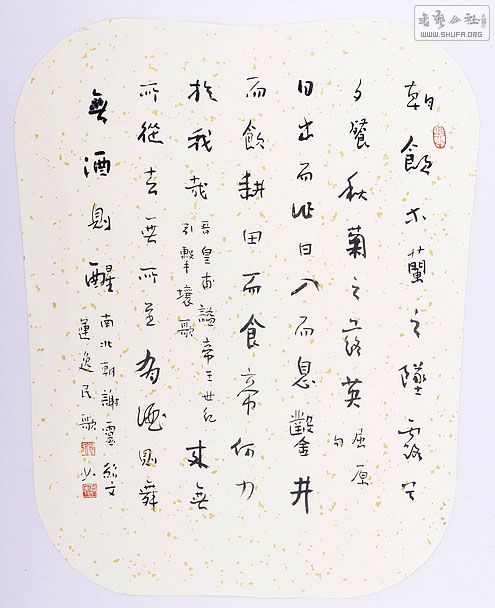 书艺公社
WWW.SHUFA.ORG
朝飲木蘭之墜露兮
夕餐秋菊之落英 屈原句
日出而作日入而息鑿井
而飲耕田而食帝何力
於我哉 晉皇甫謐帝王世紀引擊壤歌 來無
所從去無所至有酒則舞
無酒則醒 南北朝謝靈
運逸民